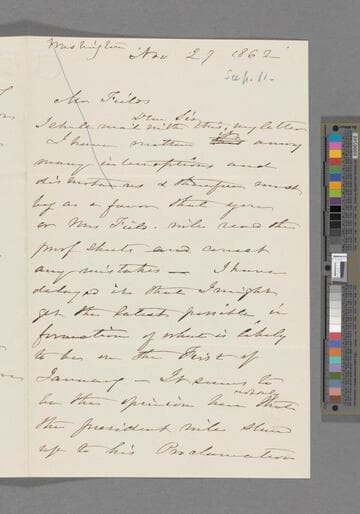 Washington Nov 27 1862
Mr Fields
Dear Sir
I shall mail with this, my letter
I have written it among
many interruptions and
disturbances & therefore must
beg as a favor that you
or Mrs Fields. will read the
proof sheets and correct
any mistakes — I have
delayed it that I might
get the latest possible in
formation of what is likely
to be on the First of
January — It seems to
be the opinion here that
the president will stand
up to his Proclamation